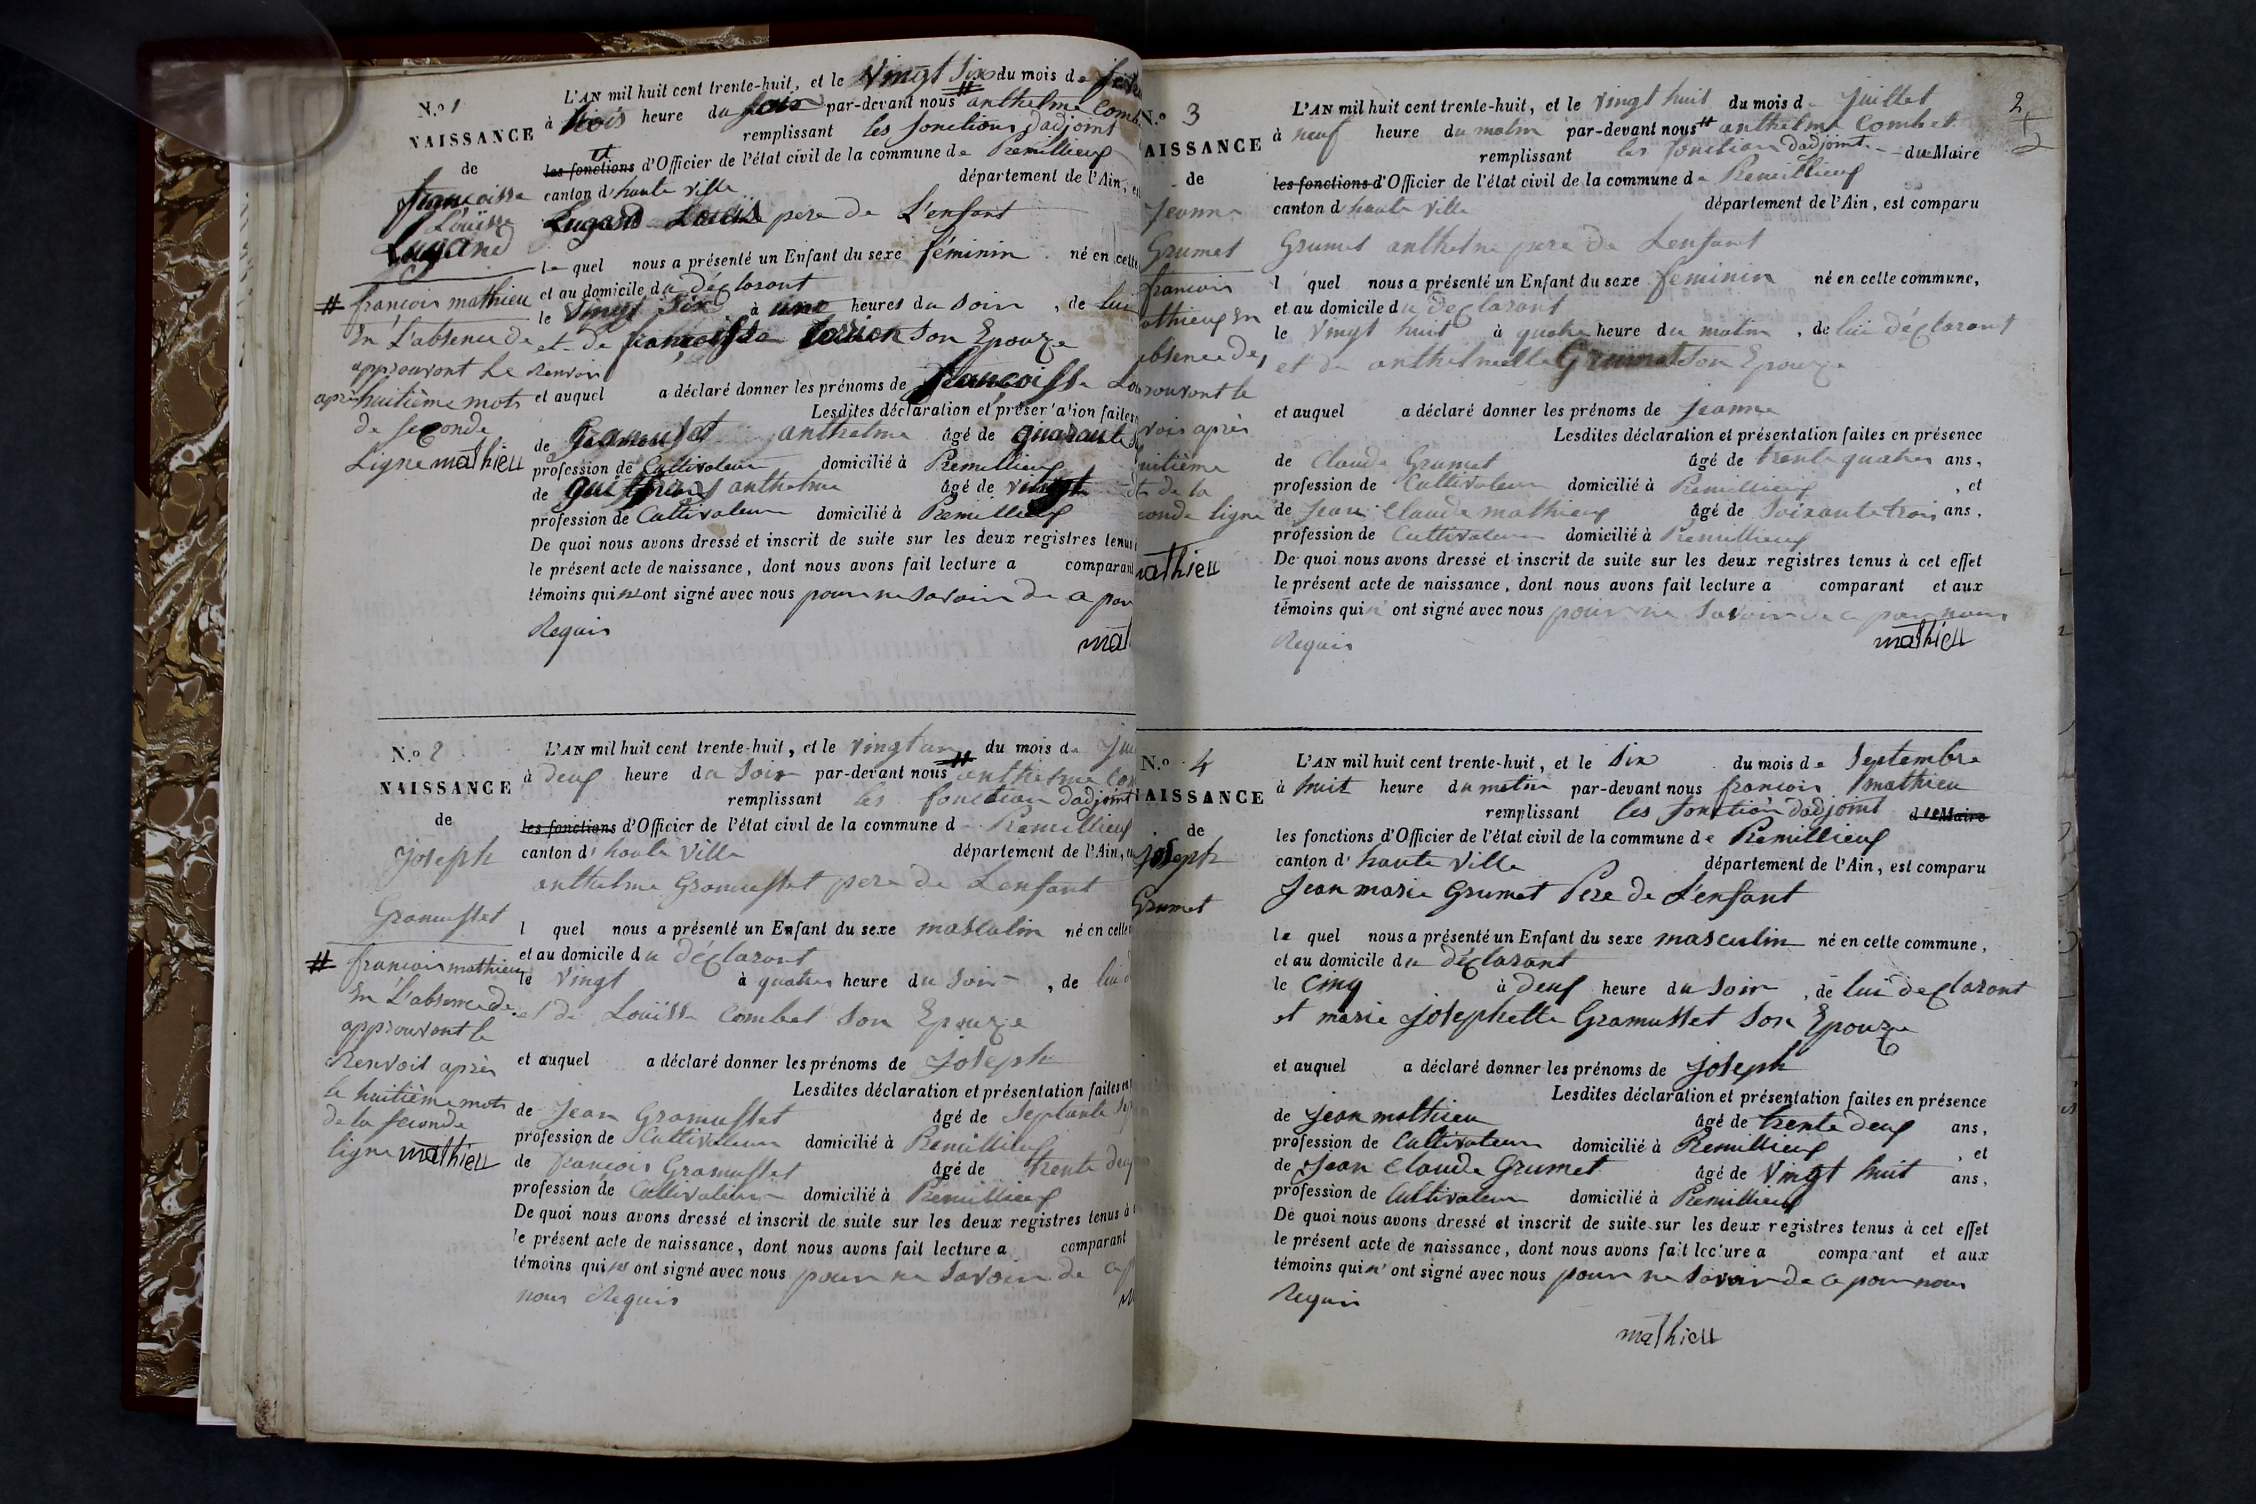 N.o 1
NAISSANCE
de
françoisse
Louisse
Lugand
# françois mathieu
En L'absence de
approuvont Le Renvoi
après huitième mots
de seconde
Ligne mathieu
L'AN mil huit cent trente-huit, et le Vingt Six du mois de
à trois heure du soir par-devant nous # anthelme
remplissant les fonctions d'adjoint
les fonctions d'Officier de l'état civil de la commune de Premillieux
canton d'haute Ville département de l'Ain,
Lugand Louis pere de L'enfant
le quel nous a présenté un Enfant du sexe féminin né en cette
et au domicile du déclarant
le Vingt Six à une heures du soir, de lui
et de françoisse son Epouze
et auquel a déclaré donner les prénoms de françoisse
Lesdites déclaration et présentation faites
de Gramusset anthelme âgé de quarante
profession de Cultivateur domicilié à Premillieux
de anthelme âgé de vingt
profession de Cultivateur domicilié à Premillieux
De quoi nous avons dressé et inscrit de suite sur les deux registres tenus
le présent acte de naissance, dont nous avons fait lecture a comparant
témoins qui n'ont signé avec nous pour ne savoir de ce par
Requis
N.o 2
NAISSANCE
de
joseph
Gramusset
# françois mathieu
En L'absence de
approuvont le
Renvoit après
le huitième mots
de la seconde
ligne mathieu
L'AN mil huit cent trente-huit, et le vingt un du mois de
à deux heure du soir par-devant nous # anthelme
remplissant les fonction d'adjoint
les fonctions d'Officier de l'état civil de la commune d Premillieux
canton d'haute Ville département de l'Ain,
anthelme Gramusset pere de L'enfant
l quel nous a présenté un Enfant du sexe masculin né en cette
et au domicile du déclarant
le Vingt à quatre heure du soir, de lui
et de Louisse Combet son Epouze
et auquel a déclaré donner les prénoms de joseph
Lesdites déclaration et présentation faites
de Jean Gramusset âgé de septante
profession de Cultivateur domicilié à Premillieux
de françois Gramusset âgé de trente deux
profession de Cultivateur domicilié à Premillieux
De quoi nous avons dressé et inscrit de suite sur les deux registres tenus à
le présent acte de naissance, dont nous avons fait lecture a comparant
témoins qui n'ont signé avec nous pour ne savoir de ce
nous Requis
2
N.o 3
AISSANCE
de
Jeanne
Grumet
françois
athieux En
absence de
rouvont le
voi après
uitième
de la
conde ligne
mathieu
L'AN mil huit cent trente-huit, et le vingt huit du mois de Juillet
à neuf heure du matin par-devant nous # anthelme Combet
remplissant les fonction d'adjoint du Maire
les fonctions d'Officier de l'état civil de la commune de Premillieux
canton d'haute Ville département de l'Ain, est comparu
Grumet anthelme pere de Lenfant
l quel nous a présenté un Enfant du sexe feminin né en cette commune,
et au domicile du déclarant
le vingt huit à quatre heure du matin, de lui déclarant
et de anthelmette Grumet son Epouze
et auquel a déclaré donner les prénoms de Jeanne
Lesdites déclaration et présentation faites en présence
de Claude Grumet âgé de trente quatre ans,
profession de Cultivateur domicilié à Premillieux, et
de Jean Claude mathieux âgé de Soixante trois ans,
profession de Cultivateur domicilié à Premillieux
De quoi nous avons dressé et inscrit de suite sur les deux registres tenus à cet effet
le présent acte de naissance, dont nous avons fait lecture a comparant et aux
témoins qui n'ont signé avec nous pour ne Savoir de ce par nous
Requis mathieu
N.o 4
NAISSANCE
de
joseph
Grumet
L'AN mil huit cent trente-huit, et le six du mois de Septembre
à huit heure du matin par-devant nous françois mathieu
remplissant les fonction d'adjoint d le Maire
les fonctions d'Officier de l'état civil de la commune de Premillieux
canton d'haute Ville département de l'Ain, est comparu
Jean marie Grumet Pere de L'enfant
le quel nous a présenté un Enfant du sexe masculin né en cette commune,
et au domicile du déclarant
le cinq à deux heure du soir, de lui declarant
et marie josephette Gramusset son Epouze
et auquel a déclaré donner les prénoms de joseph
Lesdites déclaration et présentation faites en présence
de jean mathieu âgé de trente deux ans,
profession de Cultivateur domicilié à Premillieux, et
de Jean Claude Grumet âgé de Vingt huit ans,
profession de Cultivateur domicilié à Premillieux
De quoi nous avons dressé et inscrit de suite sur les deux registres tenus à cet effet
le présent acte de naissance, dont nous avons fait lecture a comparant et aux
témoins qui n'ont signé avec nous pour ne savoir de ce par nous
Requis
mathieu